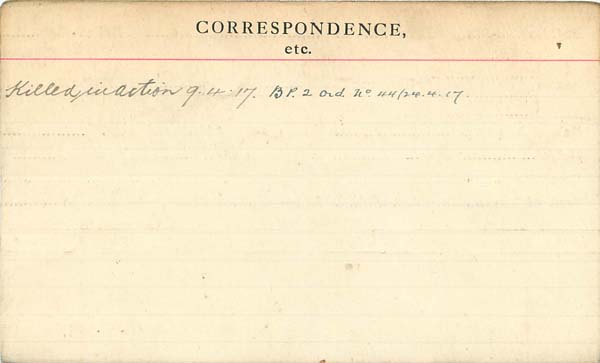 CORRESPONDENCE,
etc.
Killed in action 9.4.17. B P. 2 ord. No 44/24.4.17.